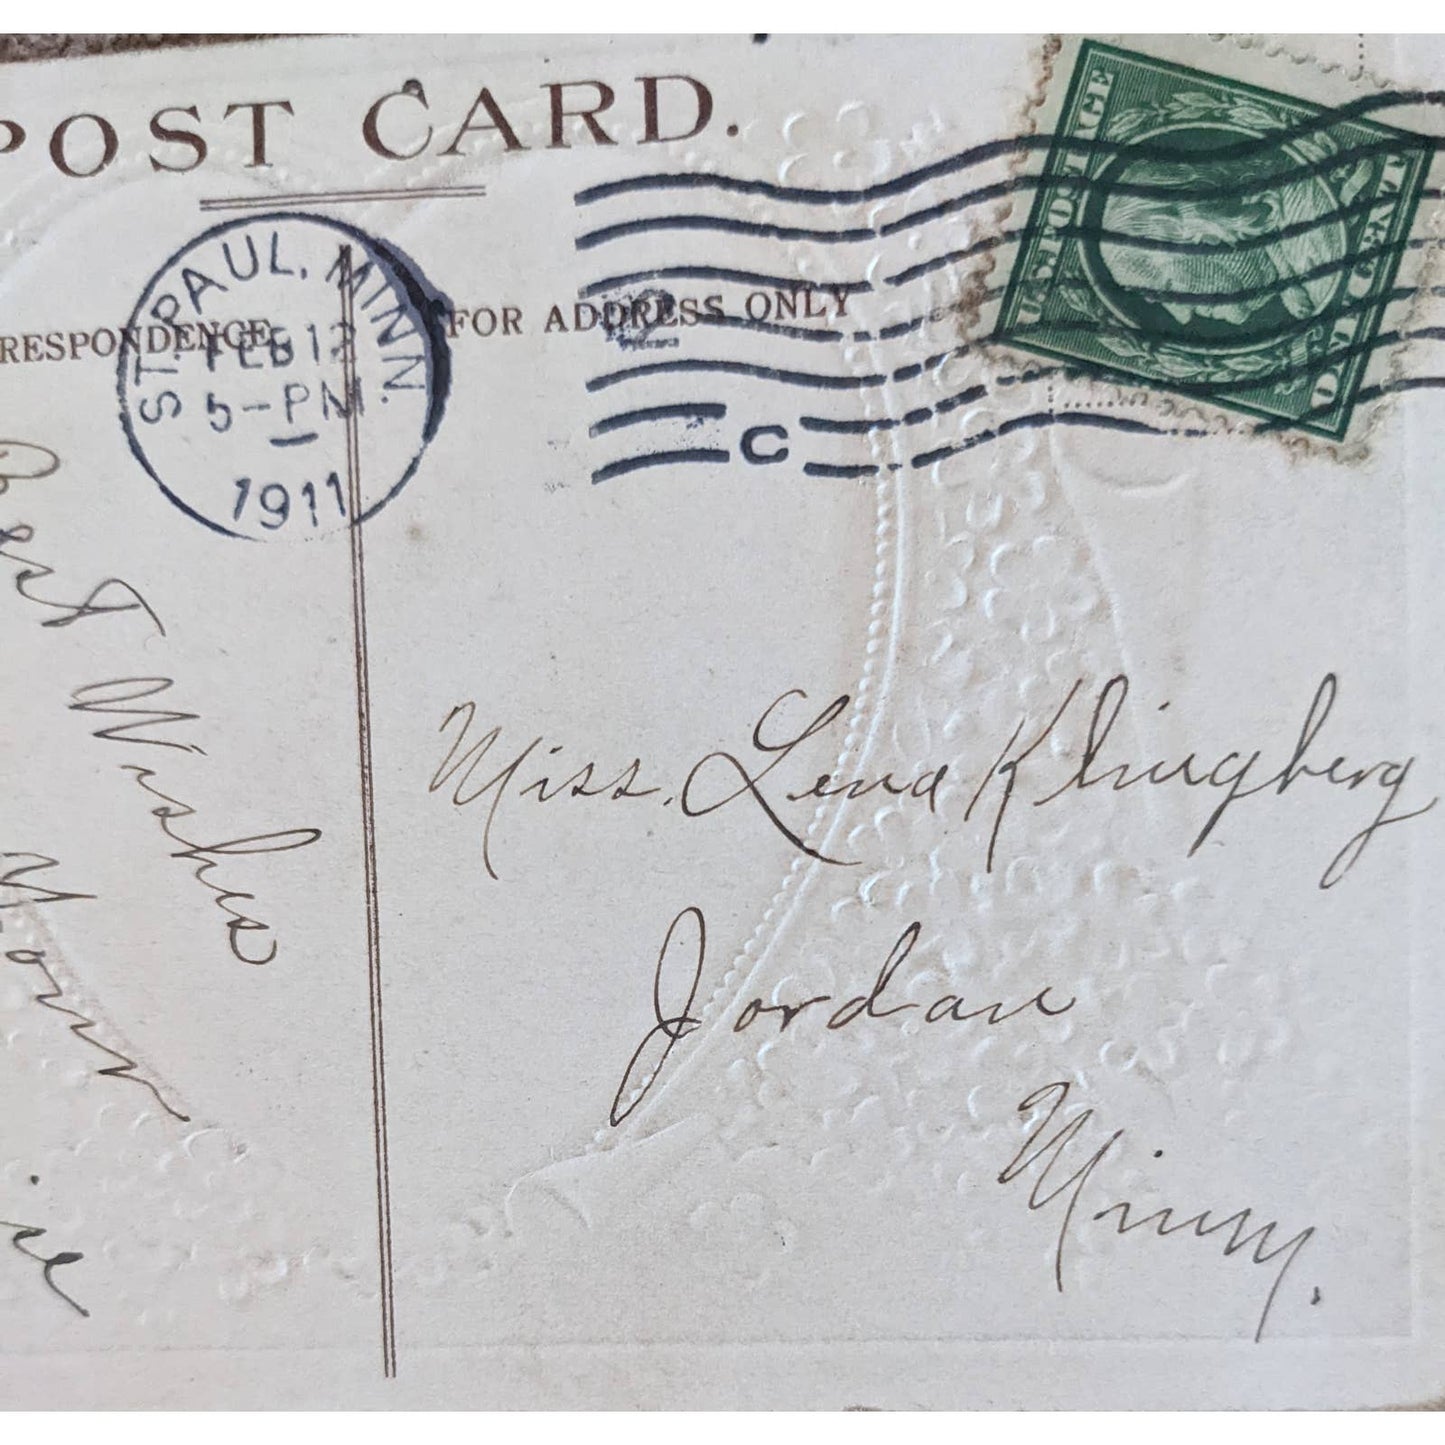 POST CARD.
U.S. POSTAGE
ONE CENT
ST. PAUL, MINN.
FEB 13
5-PM
1911
C
RESPONDENCE
FOR ADDRESS ONLY
Best Wishes
from
Miss. Lena Klingberg
Jordan
Minn.